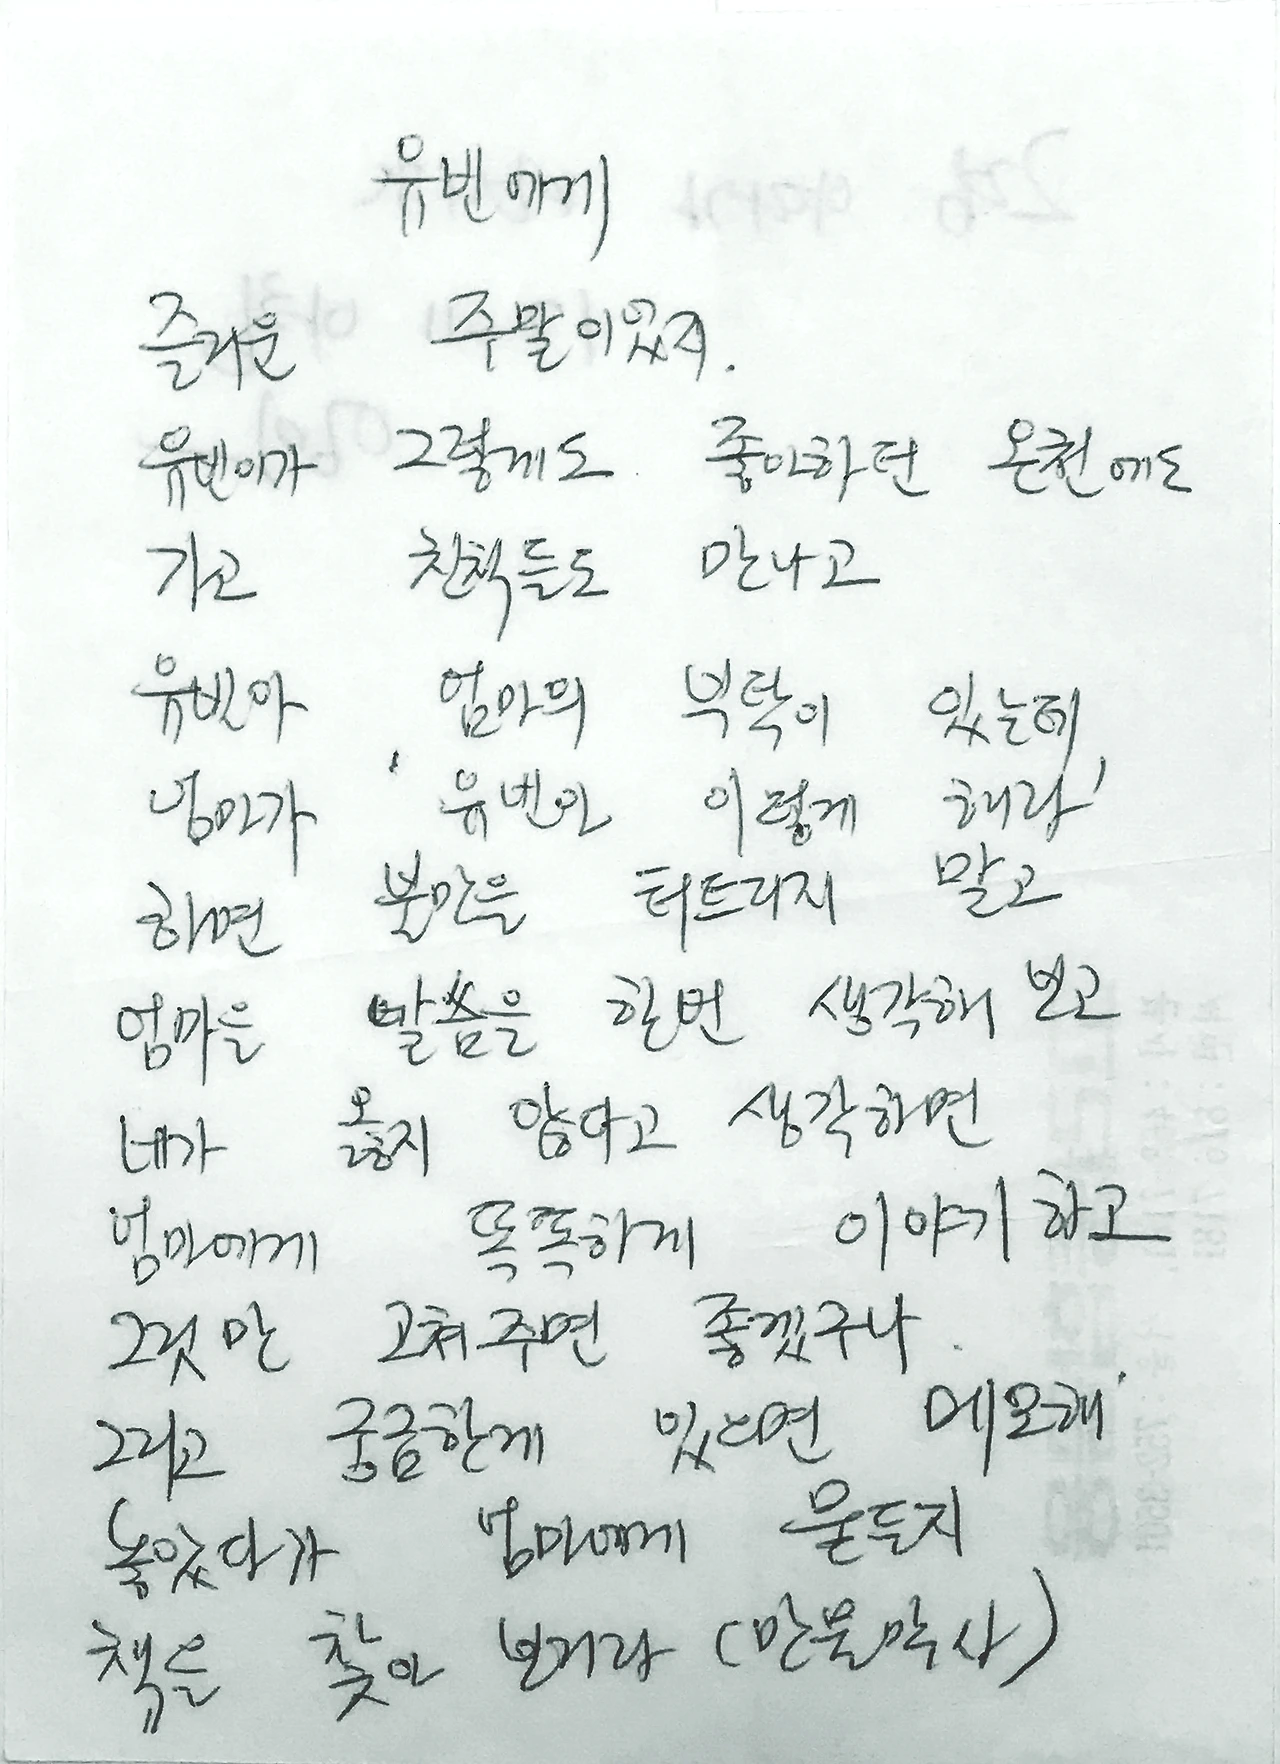 유빈에게
즐거운 주말이었지.
유빈이가 그렇게도 좋아하던 온천에도
가고 친척들도 만나고
유빈아 엄마의 부탁이 있는데
엄마가 '유빈아 이렇게 해라'
하면 불만을 터트리지 말고
엄마을 말씀을 한번 생각해 보고
네가 옳지 않다고 생각하면
엄마에게 똑똑하게 이야기 하고
그것만 고쳐주면 좋겠구나.
그리고 궁금한게 있으면 메모해
놓았다가 엄마에게 묻든지
책을 찾아 보거라 (만물박사)